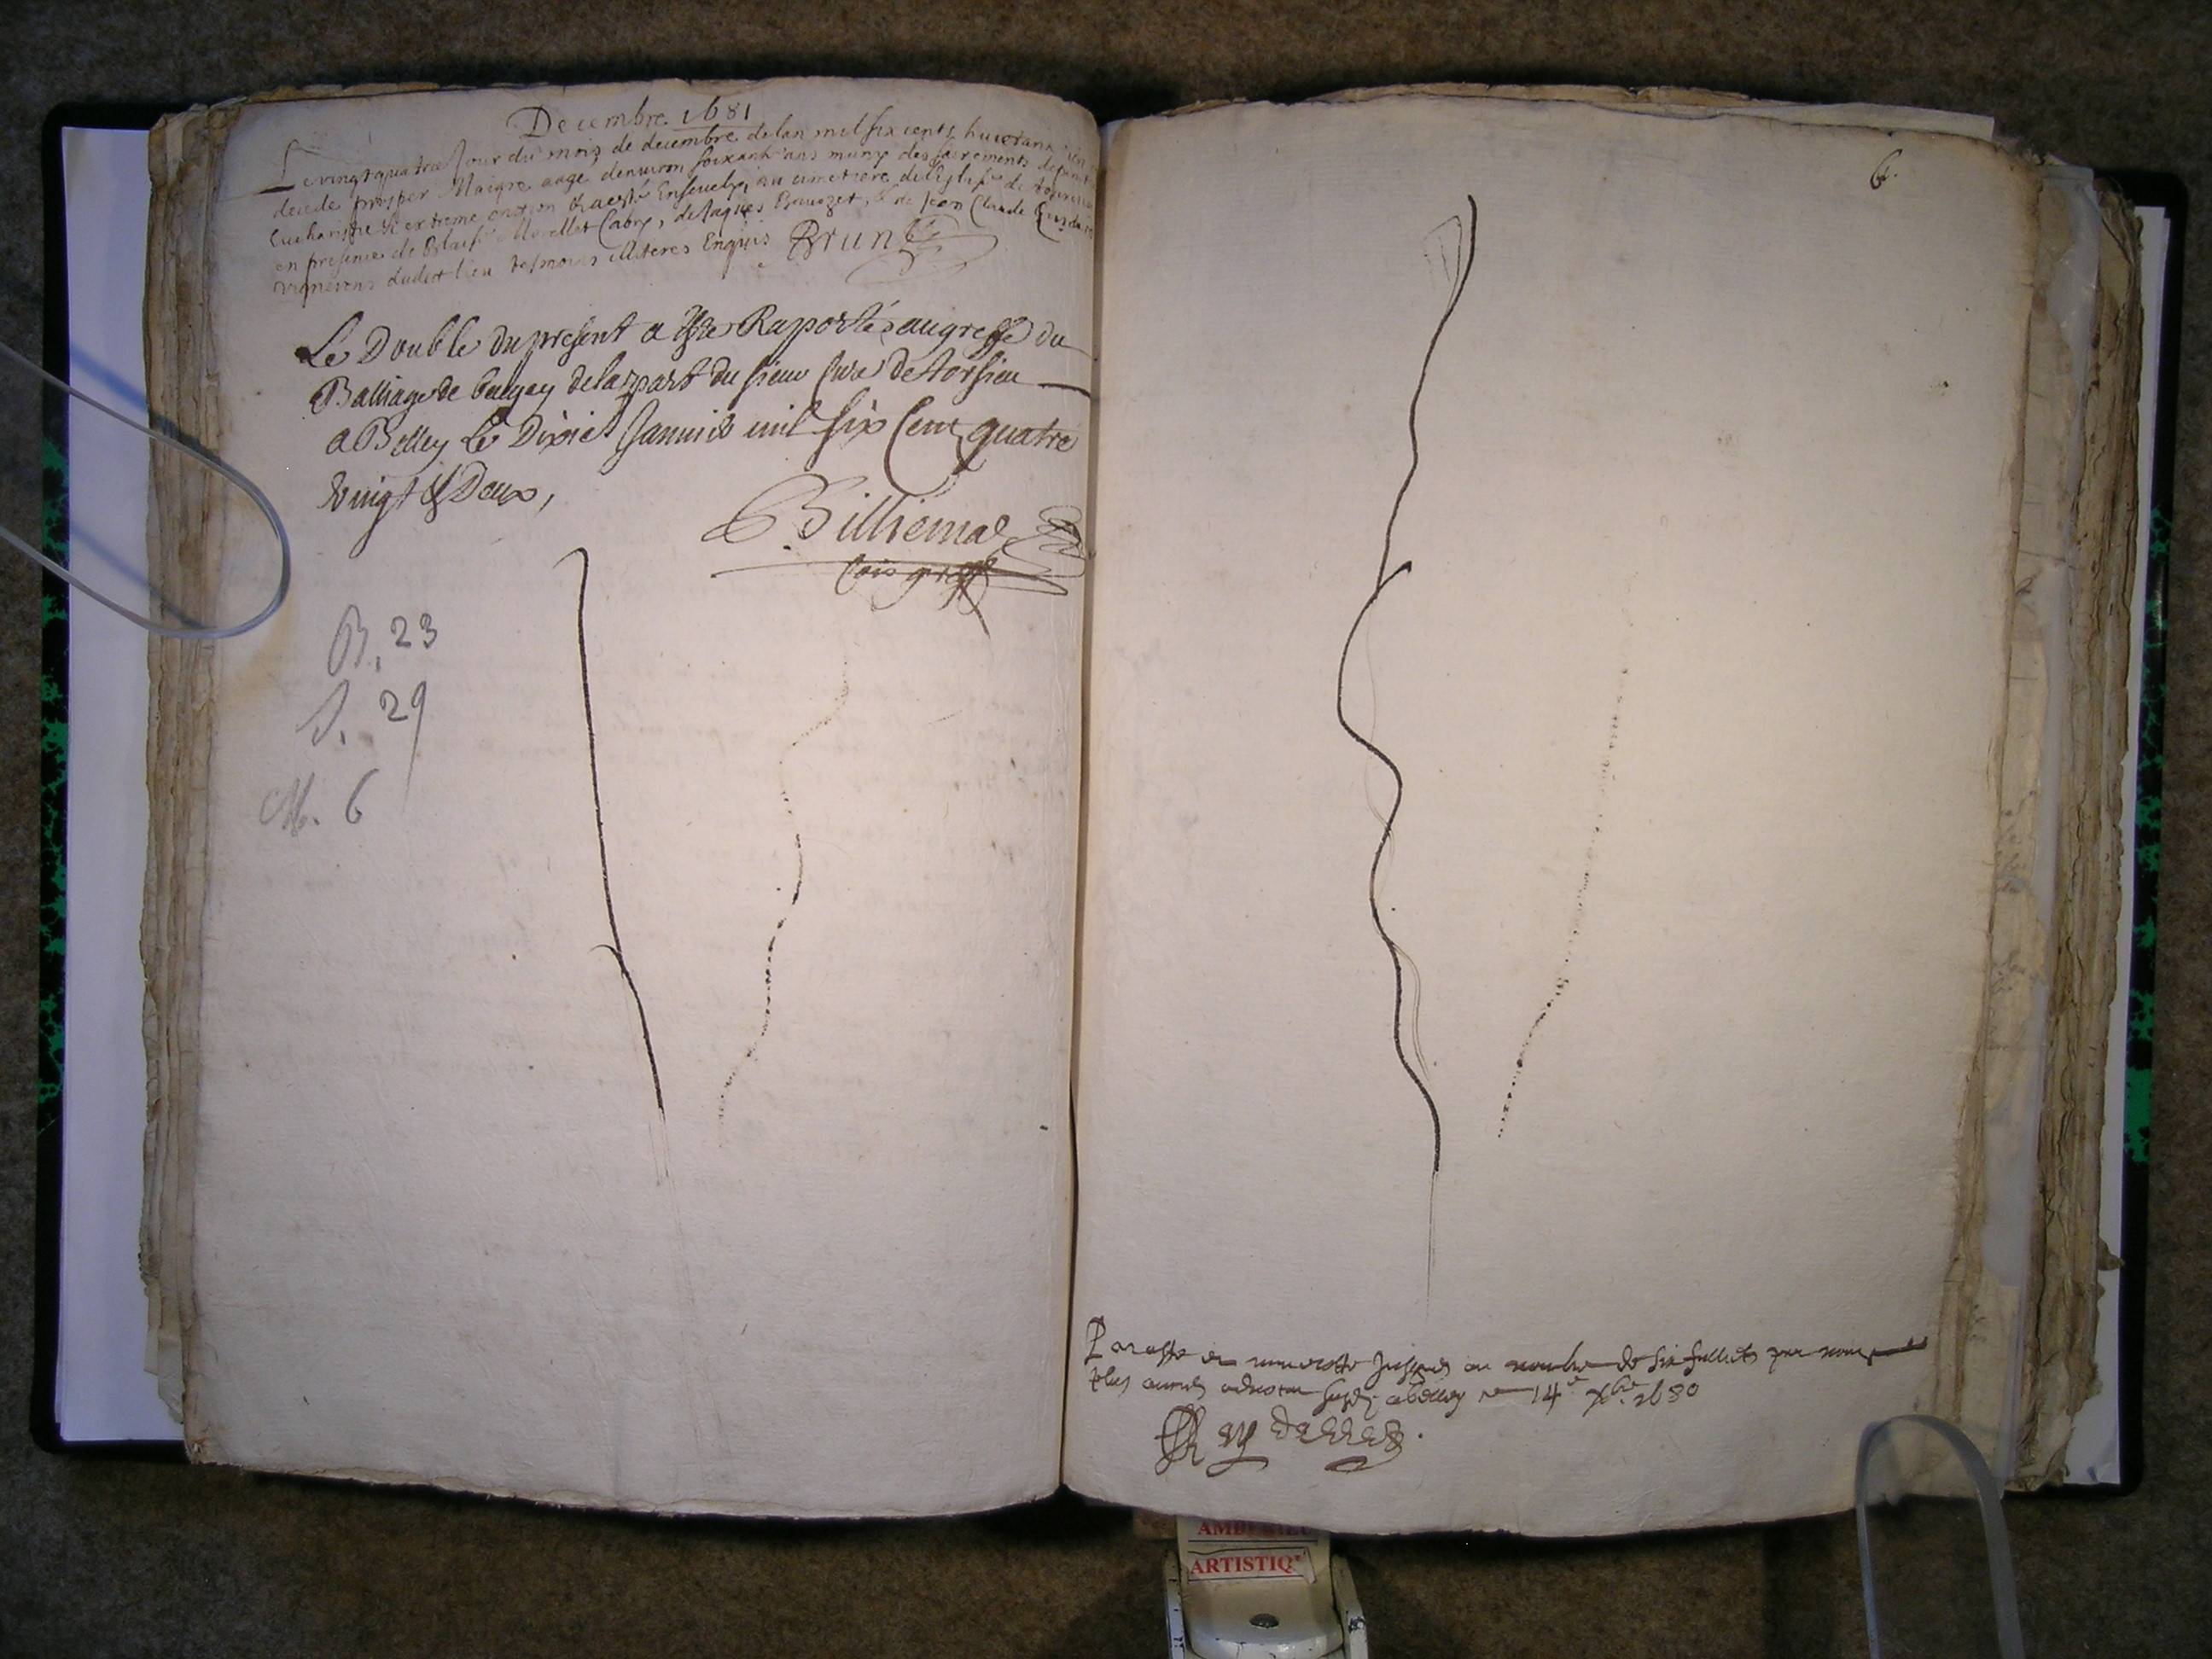 Decembre 1681
Le vingtquatre Jour du mois de decembre de lan mil six cents huictante
decede prosper Maigre aagé denuiron soixante ans muny des sacrements
Eucharistie & extreme onction & a esté Enseuely au cimetiere de leglise de
en presence de Blaise Morellet Cabry, de Jaques Bouuzet, & de Jean Claude
vignerons dudict lieu tesmoins illiteres Enquis Brun
Le Double du present a Esté Raporté au greffe du
Balliage de bugey de la part du sieur Curé de
a Belley Le Dixie Januier mil six Cent quatre
vingt & Deux,
Billiema
Com greff
B. 23
S. 29
M. 6
6.
Paraffe et Jusques au nombre de six fullietz par nous
plus antien aduocat a belley ce 14e Xbre 1680
AMBERIEU
ARTISTIQ'